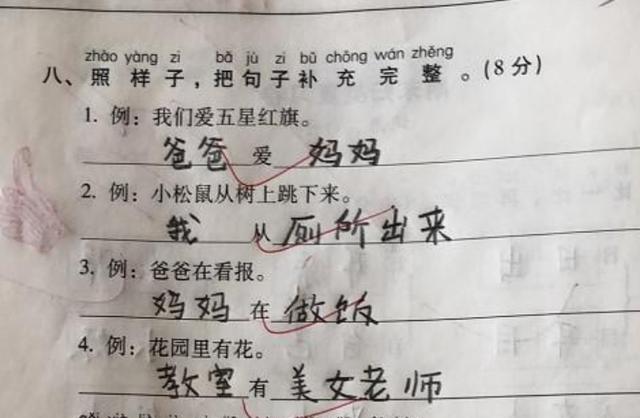 zhào yàng zi bǎ jù zi bǔ chōng wán zhěng
八、照样子，把句子补充完整。(8分)
1. 例：我们爱五星红旗。
爸爸爱妈妈
2. 例：小松鼠从树上跳下来。
我从厕所出来
3. 例：爸爸在看报。
妈妈在做饭
4. 例：花园里有花。
教室有美女老师